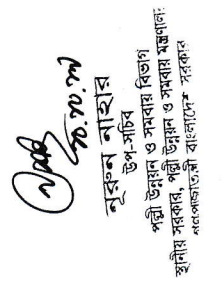 নূরুন নাহার
উপ-সচিব
পল্লী উন্নয়ন ও সমবায় বিভাগ
স্থানীয় সরকার, পল্লী উন্নয়ন ও সমবায় মন্ত্রণালয়
গণপ্রজাতন্ত্রী বাংলাদেশ সরকার